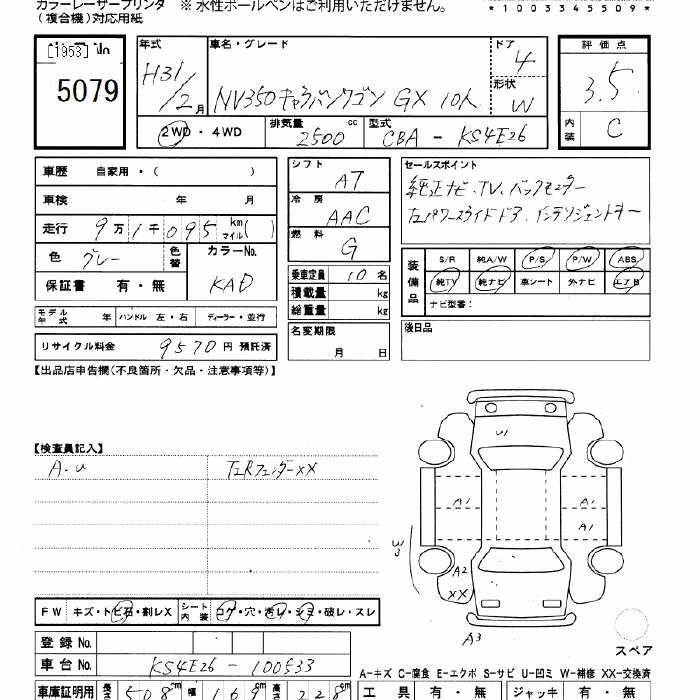 カラーレーザープリンタ ※ 水性ボールペンはご利用いただけません。
(複合機)対応用紙
*1003345509*
[1953]
5079
年式 H31/2月
車名・グレード NV350キャラバンワゴン GX 10人
ドア 4
形状 W
評価点 3.5
内装 C
2WD・4WD
排気量 2500 cc
型式 CBA - KS4E26
車歴 自家用・( )
車検 年 月
走行 9万1千095 km マイル( )
色 グレー 色替 カラーNo. KAD
保証書 有・無
モデル年式 年 ハンドル 左・右 ディーラー・並行
リサイクル料金 9570円 預託済
シフト AT
冷房 AAC
燃料 G
乗車定員 10名
積載量 kg
総重量 kg
名変期限 月 日
セールスポイント
純正ナビ、TV、バックモニター
左パワースライドドア、インテリジェントキー
装備品 S/R 純A/W P/S P/W ABS
純TV 純ナビ 革シート 外ナビ エアB
ナビ型番:
後日品
【出品店申告欄(不良箇所・欠品・注意事項等)】
【検査員記入】
A・U
左RフェンダーXX
U1
A1 A1
A1
W3
A2
XX
A3
スペア
FW キズ・トビ石・割レX シート内装 コゲ・穴・汚レ・シミ・破レ・スレ
登録 No.
車台 No. KS4E26 - 100533
A-キズ C-腐食 E-エクボ S-サビ U-凹ミ W-補修 XX-交換済
車庫証明用 長さ 508cm 幅 169cm 高さ 228cm
工具 有・無 ジャッキ 有・無